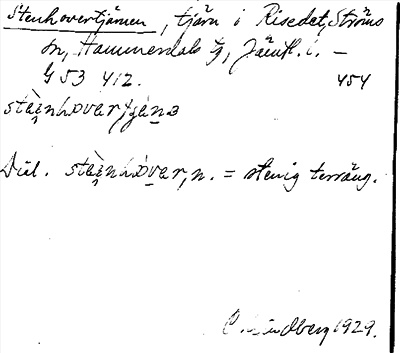 Stenhovertjärnen, tjärn i Risedet, Ströms
sn, Hammerdals tg, Jämtl. l. —
G 53 412. 454
Dial. n. = stenig terräng.
C. Lindberg 1929.